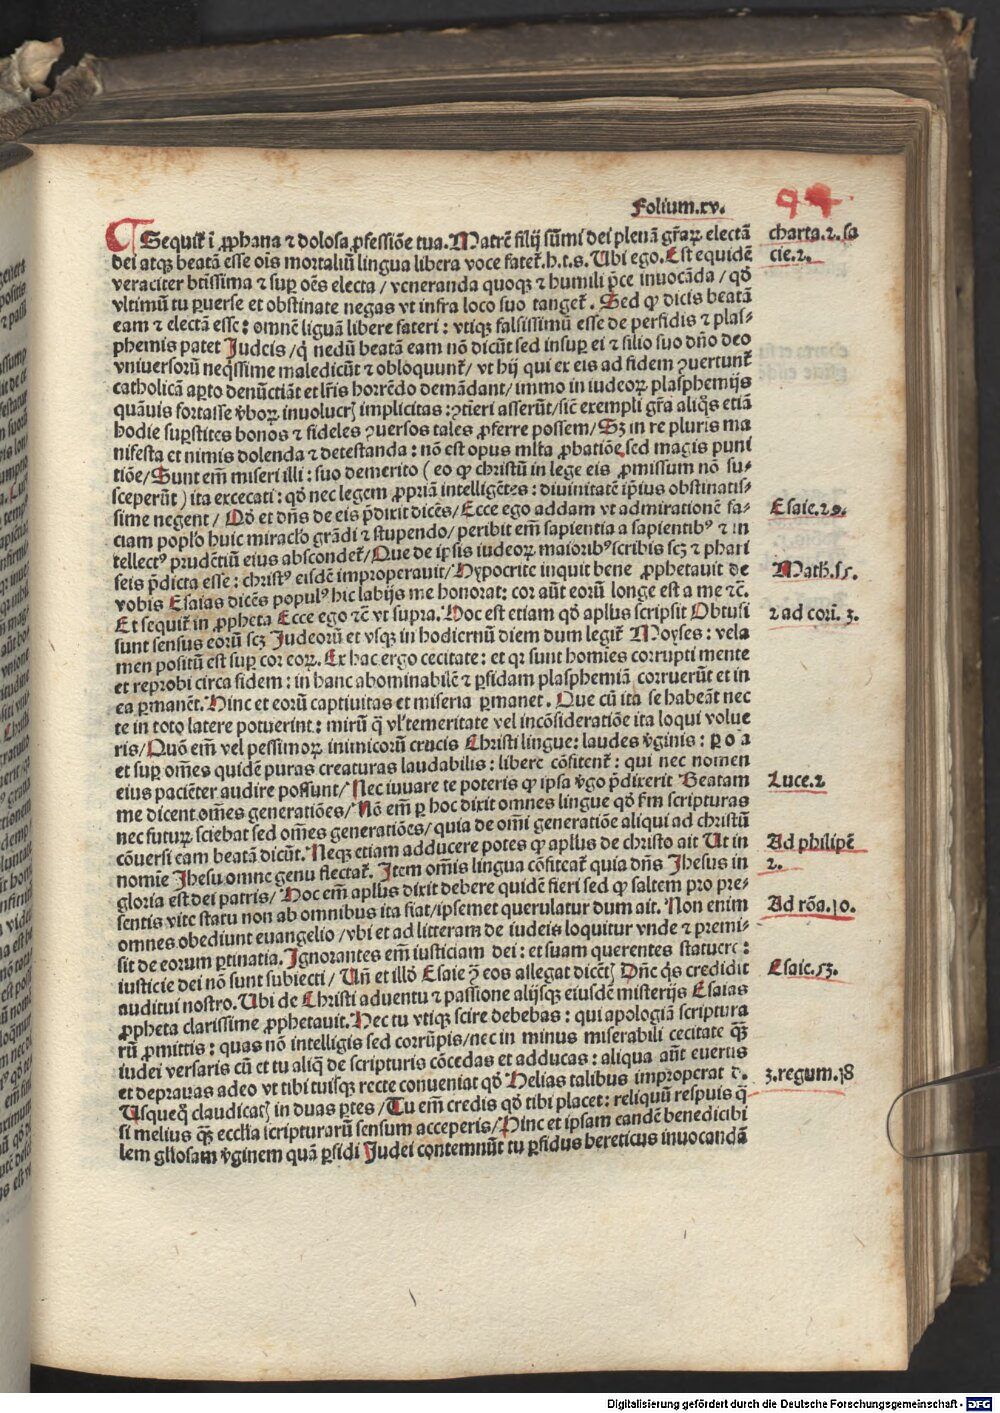 Folium.xv.
Sequit̃ ĩ ꝓphana ⁊ dolosa ꝓfessiõe tua. Matrẽ filij sũmi dei plenã gr̃aꝝ electã
dei atqꝫ beatã esse oĩs mortaliũ lingua libera voce fatet̃.h.t.s. Ubi ego. Est equidẽ
veraciter btissima ⁊ suꝑ oẽs electa / veneranda quoqꝫ ⁊ humili p̃ce inuocãda / qð
vltimũ tu ꝑuerse et obstinate negas vt infra loco suo tanget̃. Sed ꝙ dicis beatã
eam ⁊ electã esse: omnẽ liguã libere fateri: vtiqꝫ falsissimũ esse de perfidis ⁊ plas⸗
phemis patet Judeis / q̇ nedũ beatã eam nõ dicũt sed insuꝑ ei ⁊ filio suo dño deo
vniuersorũ neq̃ssime maledicũt ⁊ obloquunt̃ / vt hij qui ex eis ad fidem ꝯuertunt̃
catholicã aꝑto denũctiãt et lr̃is horrẽdo demãdant / immo in iudeoꝝ plasphemijs
quãuis fortasse v̾boꝝ inuolucrꝭ implicitas: ꝯtieri asserũt / sic̃ exempli gr̃a aliq̃s etiã
hodie suꝑstites bonos ⁊ fideles ꝯuersos tales ꝓferre possem / Sꝫ in re pluris ma
nifesta et nimis dolenda ⁊ detestanda: nõ est opus mlta ꝓbatiõe sed magis puni
tiõe / Sunt em̃ miseri illi: suo demerito ( eo ꝙ christũ in lege eis ꝓmissum nõ su⸗
sceperũt ) ita excecati: qð nec legem ꝓpriã intelligẽtes: diuinitatẽ ip̃ius obstinatis⸗
sime negent / Qð et dñs de eis p̃dixit dicẽs / Ecce ego addam vt admirationẽ fa⸗
ciam poplo̾ huic miraclo̾ grãdi ⁊ stupendo / peribit em̃ sapientia a sapientibꝰ ⁊ in
tellectꝰ prudẽtiũ eius abscondet̃ / Que de ip̃sis iudeoꝝ maioribꝰ scribis scꝫ ⁊ phari
seis p̃dicta esse: christꝰ eisdẽ improperauit / Hypocrite inquit bene ꝓphetauit de
vobis Esaias dicẽs populꝰ hic labijs me honorat: cor aũt eorũ longe est a me ⁊c̃.
Et sequit̃ in ꝓpheta Ecce ego ⁊c̃ vt supra. Hoc est etiam qð aplus scripsit Obtusi
sunt sensus eorũ scꝫ Judeorũ et vsqꝫ in hodiernũ diem dum legit̃ Moyses: vela
men positũ est suꝑ cor coꝝ. Ex hac ergo cecitate: et qꝛ sunt homĩes corrupti mente
et reprobi circa fidem: in hanc abominabilẽ ⁊ ꝑfidam plasphemiã corruerũt et in
ea ꝑmanẽt. Hinc et eorũ captiuitas et miseria ꝑmanet. Que cũ ita se habeãt nec
te in toto latere potuerint: mirũ q̃ vl̾ temeritate vel incõsideratiõe ita loqui volue
ris / Quõ em̃ vel pessimoꝝ inimicorũ crucis Christi lingue: laudes v̾ginis:
et suꝑ omẽs quidẽ puras creaturas laudabilis: libere cõfitent̃: qui nec nomen
eius paciẽter audire possunt / Nec iuuare te poteris ꝙ ipsa v̾go p̃dixerit Beatam
me dicent omẽs generatiões / Nõ em̃ ꝑ hoc dixit omnes lingue qð fm scripturas
nec futuꝝ sciebat sed omẽs generatiões / quia de om̃i generatiõe aliqui ad christũ
cõuersi eam beatã dicũt. Neqꝫ etiam adducere potes ꝙ aplus de christo ait Ut in
nomĩe Jhesu omne genu flectat̃. Item om̃is lingua cõfiteat̃ quia dñs Jhesus in
gloria est dei patris / Hoc em̃ aplus dixit debere quidẽ fieri sed ꝙ saltem pro pre⸗
sentis vite statu non ab omnibus ita fiat / ipsemet querulatur dum ait. Non enim
omnes obediunt euangelio / vbi et ad litteram de iudeis loquitur vnde ⁊ premi⸗
sit de eorum ꝑtinatia. Ignorantes em̃ iusticiam dei: et suam querentes statuere:
iusticie dei nõ sunt subiecti / Uñ et illð Esaie ꝯ̃ eos allegat dicẽtꝭ Dñe q̇s credidit
auditui nostro. Ubi de Christi aduentu ⁊ passione alijsqꝫ eiusdẽ misterijs Esaias
ꝓpheta clarissime ꝓphetauit. Hec tu vtiqꝫ scire debebas: qui apologiã scriptura
rũ ꝓmittis: quas nõ intelligis sed corrũpis / nec in minus miserabili cecitate q̃ꝫ
iudei versaris cũ et tu aliq̃ de scripturis cõcedas et adducas: aliqua aũt euertis
et deprauas adeo vt tibi tuisqꝫ recte conueniat qð Helias talibus improperat d.
Usquequo claudicatꝭ in duas ꝑtes / Tu em̃ credis qð tibi placet: reliquũ respuis q̃
si melius q̃ꝫ ecclĩa scripturarũ sensum acceperis / Hinc et ipsam eandẽ benedicibi
lem gliosam v̾ginem quã ꝑfidi Judei contemnũt tu ꝑfidus hereticus inuocandã
charta.2. fa
cie.2.
Esaie.29.
Math.15.
2 ad cori. 3.
Luce.2
Ad philipẽ
2.
Ad rõa.10.
Esaie.53.
3.regum.18
Digitalisierung gefördert durch die Deutsche Forschungsgemeinschaft - DFG